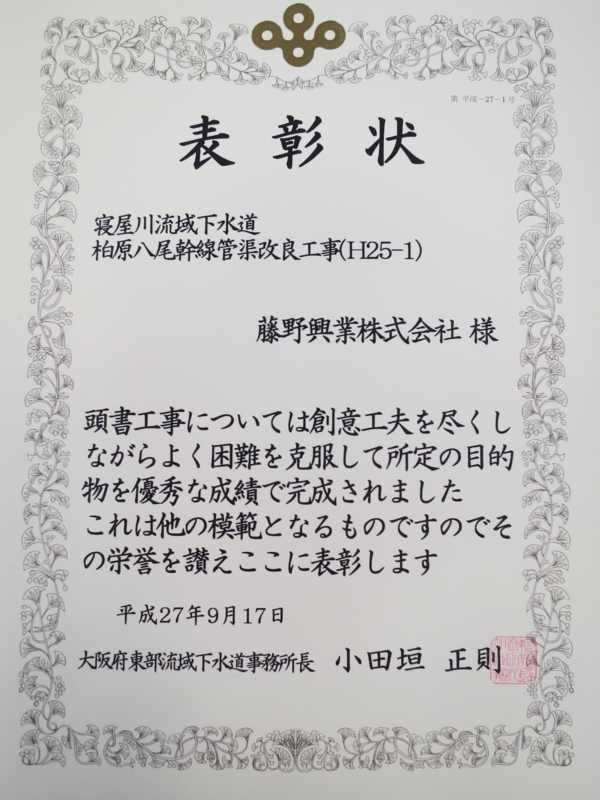 第 平成-27-1号
表彰状
寝屋川流域下水道
柏原八尾幹線管渠改良工事(H25-1)
藤野興業株式会社 様
頭書工事については創意工夫を尽くし
ながらよく困難を克服して所定の目的
物を優秀な成績で完成されました
これは他の模範となるものですのでそ
の栄誉を讃えここに表彰します
平成27年9月17日
大阪府東部流域下水道事務所長 小田垣 正則